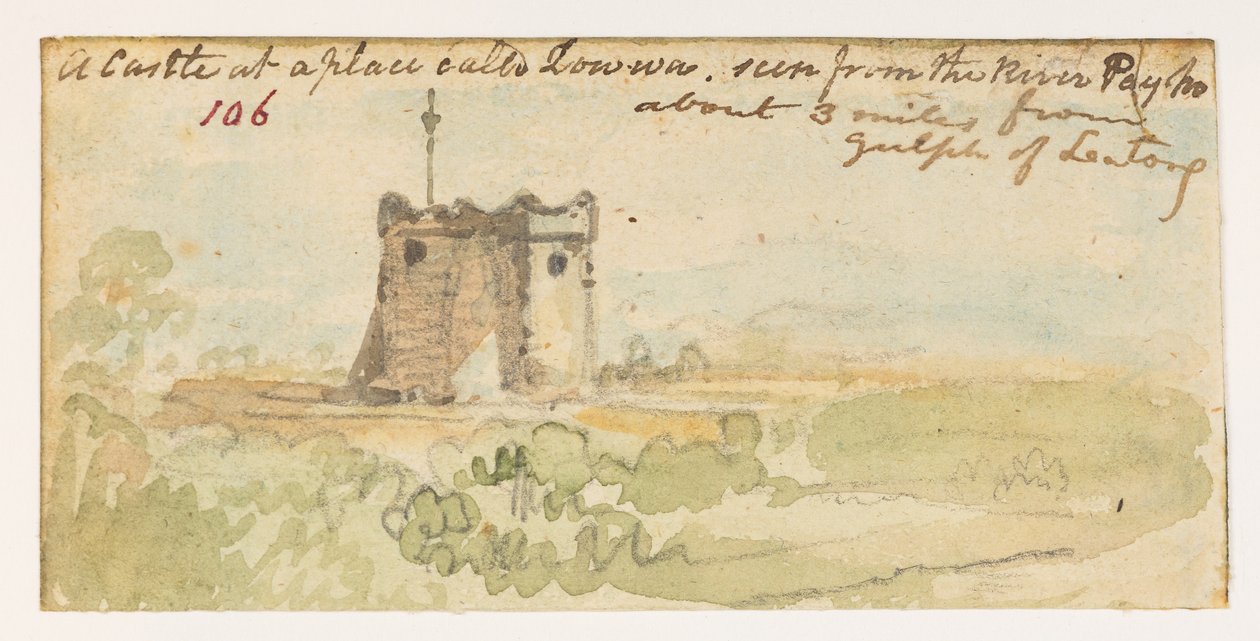 A Castle at a place called Lowwa. seen from the River Pay ho
106
about 3 miles from
Gulph of Leatong